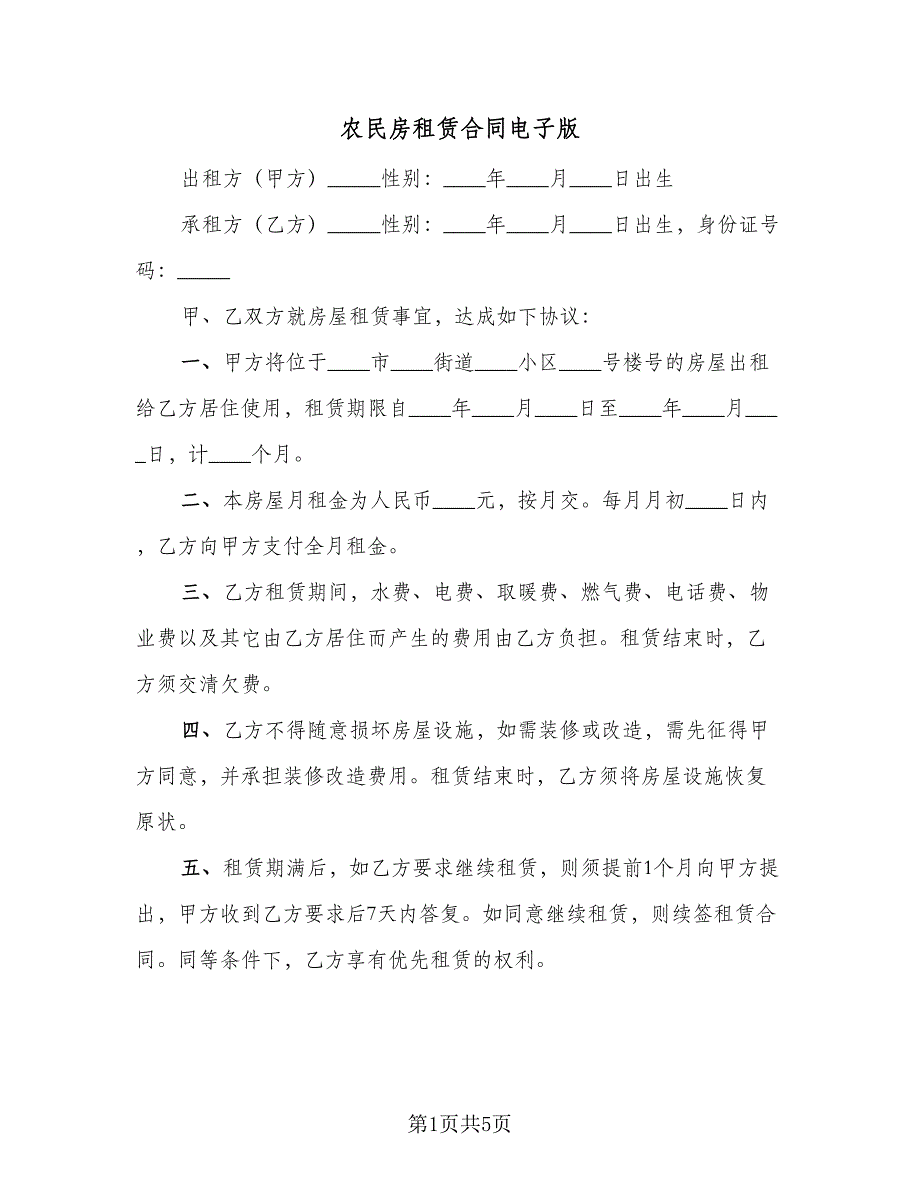 农民房租赁合同电子版
出租方（甲方）_____性别：____年____月____日出生
承租方（乙方）_____性别：____年____月____日出生，身份证号
码：_____
甲、乙双方就房屋租赁事宜，达成如下协议：
一、甲方将位于____市____街道____小区____号楼号的房屋出租
给乙方居住使用，租赁期限自____年____月____日至____年____月___
_日，计____个月。
二、本房屋月租金为人民币____元，按月交。每月月初____日内
，乙方向甲方支付全月租金。
三、乙方租赁期间，水费、电费、取暖费、燃气费、电话费、物
业费以及其它由乙方居住而产生的费用由乙方负担。租赁结束时，乙
方须交清欠费。
四、乙方不得随意损坏房屋设施，如需装修或改造，需先征得甲
方同意，并承担装修改造费用。租赁结束时，乙方须将房屋设施恢复
原状。
五、租赁期满后，如乙方要求继续租赁，则须提前1个月向甲方提
出，甲方收到乙方要求后7天内答复。如同意继续租赁，则续签租赁合
同。同等条件下，乙方享有优先租赁的权利。
第1页共5页